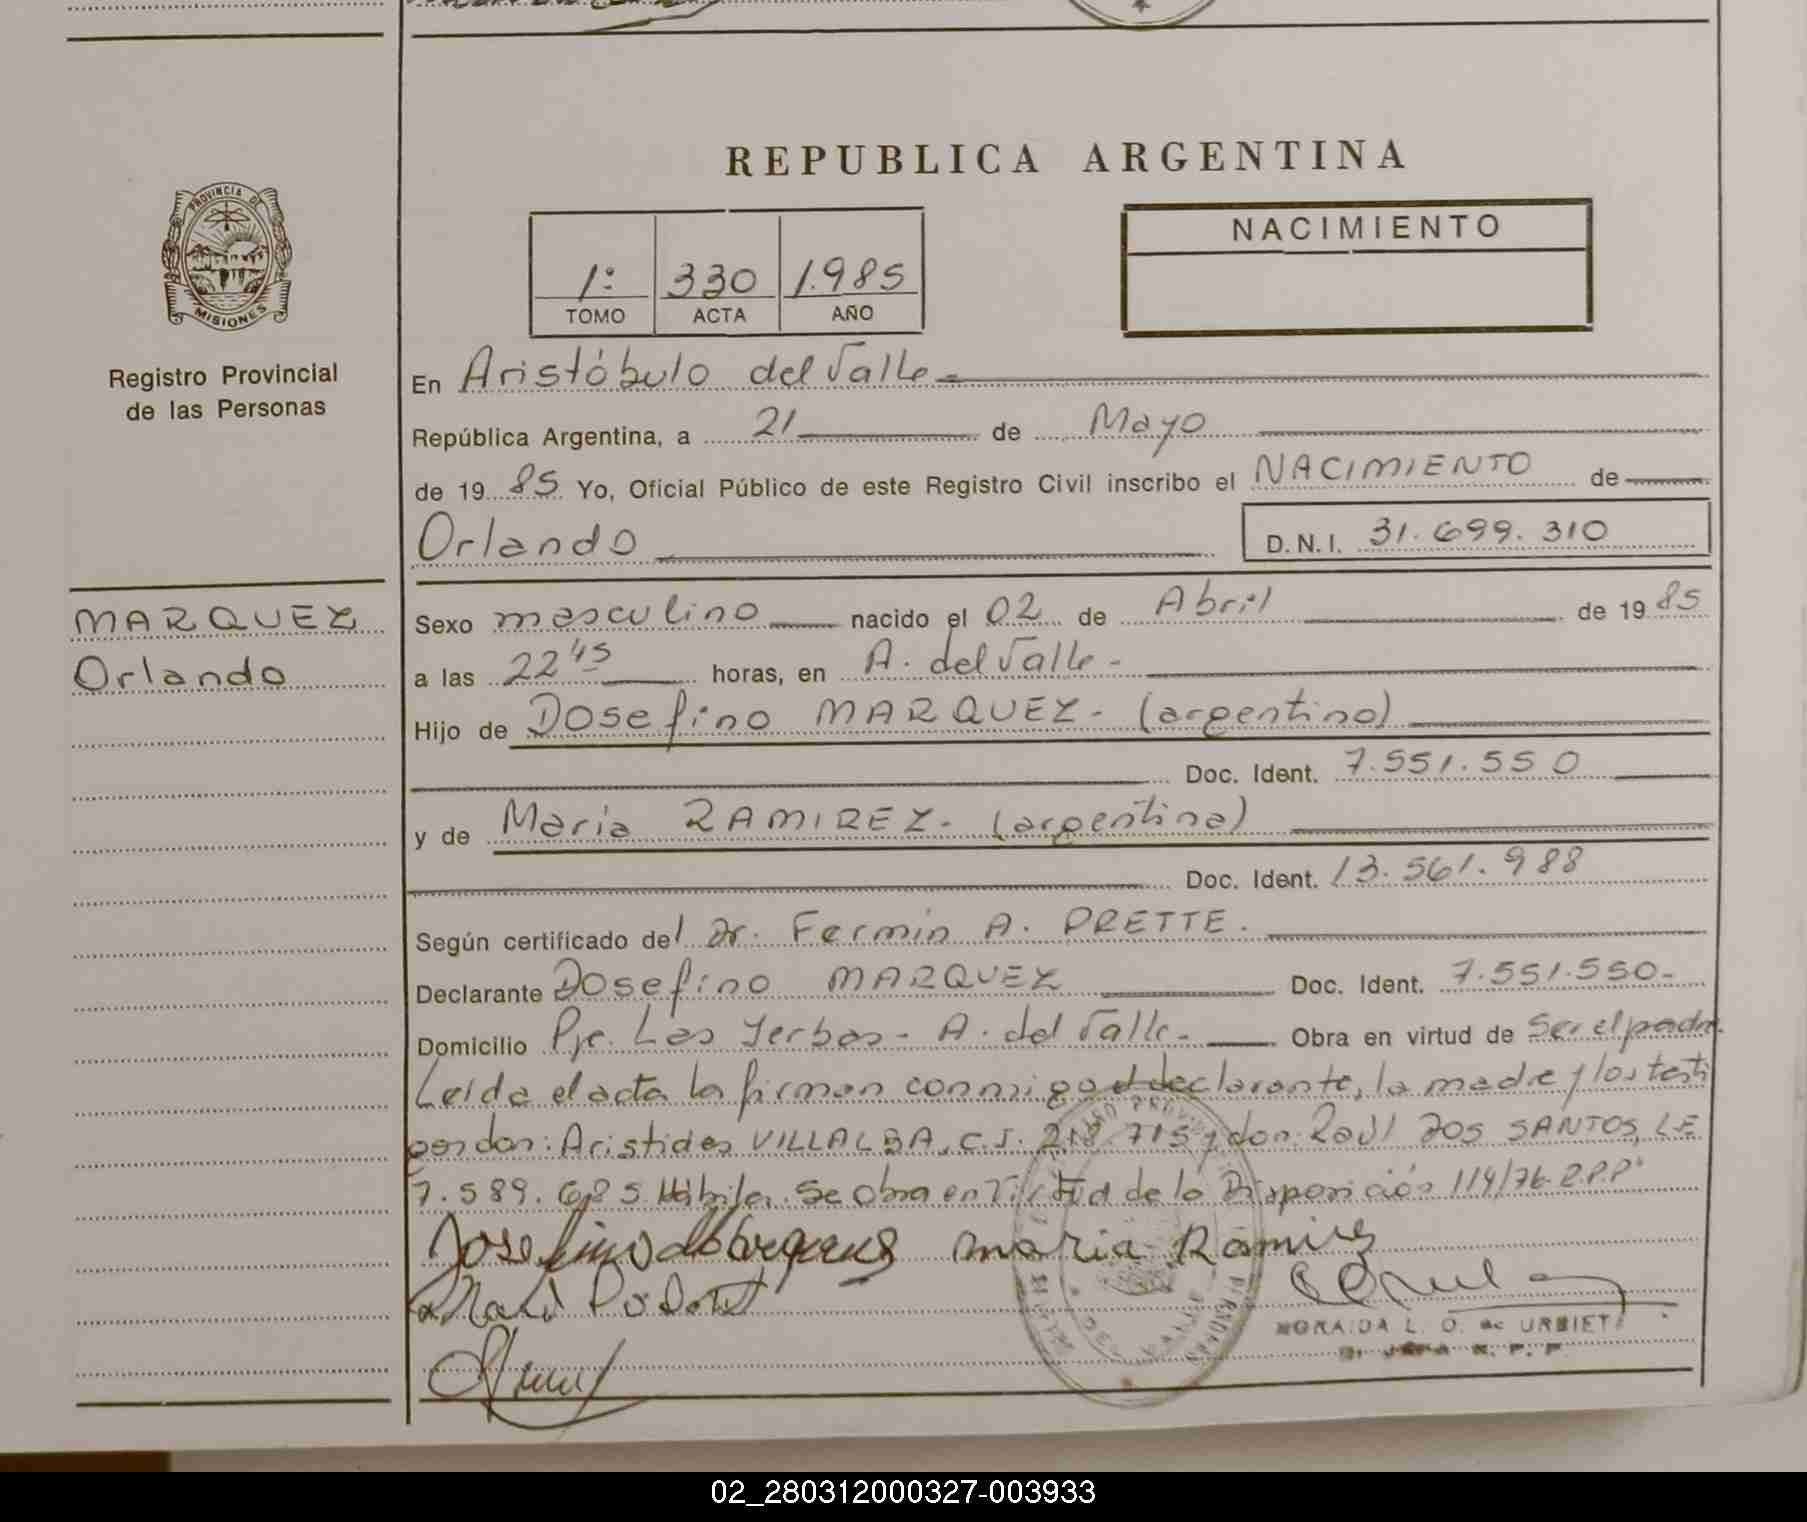 REPUBLICA ARGENTINA
PROVINCIA DE
MISIONES
Registro Provincial
de las Personas
1º 330 1.985
TOMO ACTA AÑO
NACIMIENTO
En Aristóbulo del Valle
República Argentina, a 21 de Mayo
de 19 85 Yo, Oficial Público de este Registro Civil inscribo el NACIMIENTO de
Orlando D.N.I. 31.699.310
MARQUEZ
Orlando
Sexo masculino nacido el 02 de Abril de 19 85
a las 22 45 horas, en A. del Valle-
Hijo de Josefino MARQUEZ- (argentino)
Doc. Ident. 7.551.550
y de Maria RAMIREZ- (argentina)
Doc. Ident. 13.561.988
Según certificado del Dr. Fermin A. PRETTE.
Declarante Josefino MARQUEZ Doc. Ident. 7.551.550-
Domicilio Pje. Las Yerbas- A. del Valle- Obra en virtud de Ser el padre.
Leída el acta la firman conmigo el declarante, la madre y los testi
gos don: Aristides VILLALBA, C.I. 218.715 y don: Raúl DOS SANTOS, L.E
7.589.685 Hábiles. Se Obra en Virtud de la Disposición 114/76-R.P.P.
Josefino Marquez Maria Ramirez
L. O. de URBIETA
JEFA R. P. P.
02_280312000327-003933